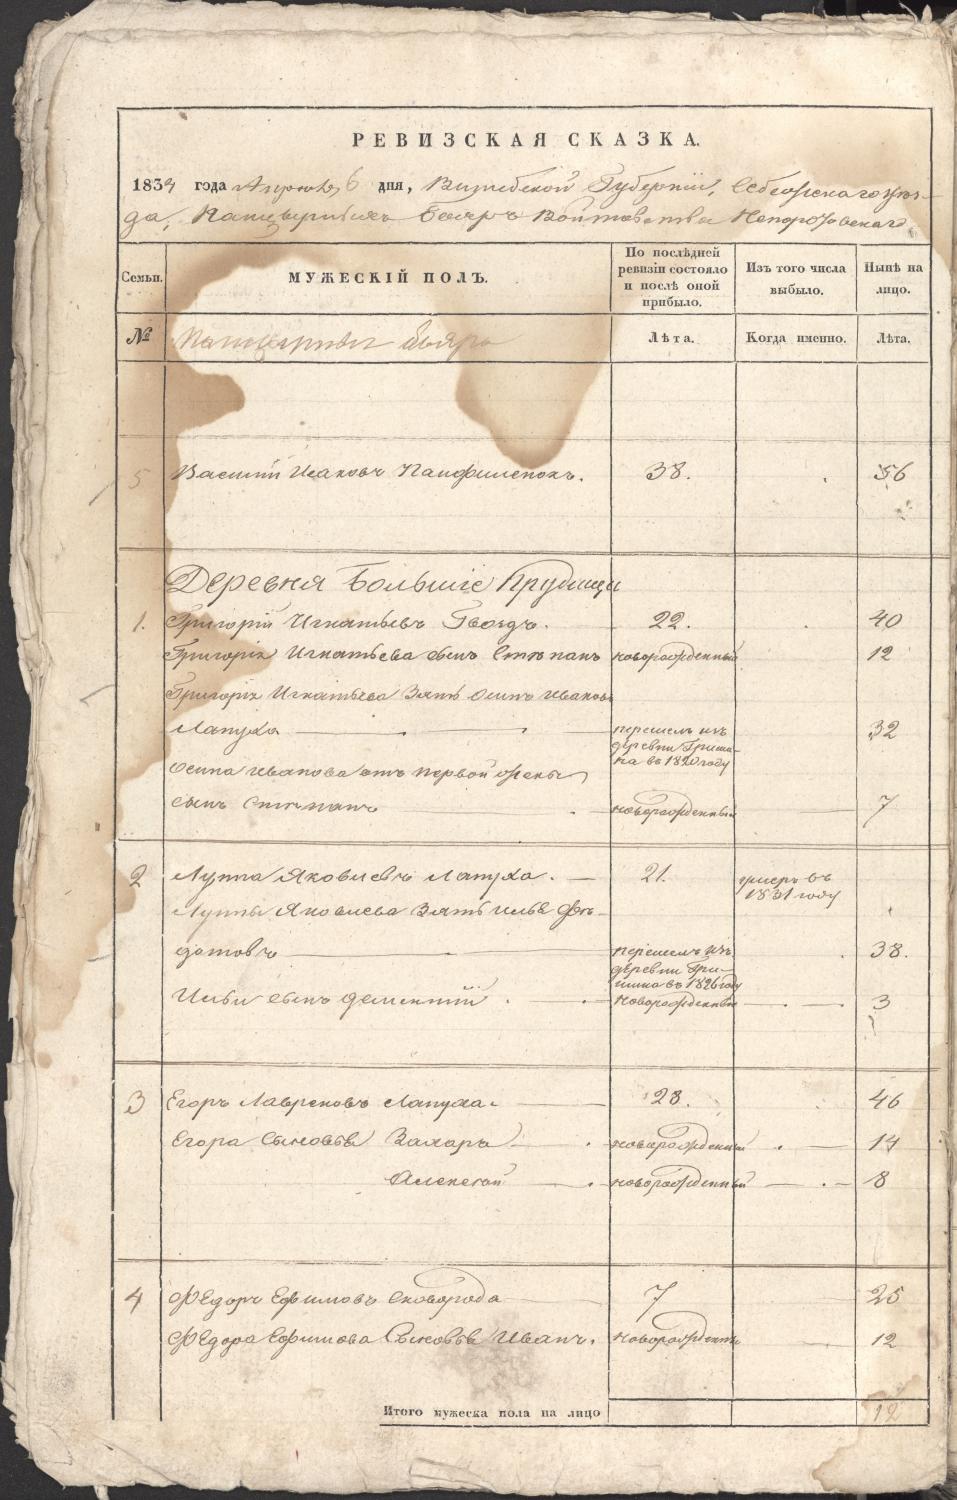 РЕВИЗСКАЯ СКАЗКА.
1834 года Апреля 6 дня, Витебской Губернии, Себежскаго уѣз-
да, Панцырныхъ Бояръ Войтовства Непоротовскаго
Семьи.
МУЖЕСКІЙ ПОЛЪ.
По послѣдней ревизіи состояло и послѣ оной прибыло.
Изъ того числа выбыло.
Нынѣ на лицо.
№
Панцырные бояре
Лѣта.
Когда именно.
Лѣта.
5 Василій Исаковъ Панфиленокъ. 38. 56
Деревня Большіе Прудищи
1. Григорій Игнатьевъ Гвоздъ. 22. 40
Григорія Игнатьева сынъ Степанъ новорожденный 12
Григорія Игнатьева Зять Осипъ Ивановъ
Лапуха перешелъ изъ деревни Гришина въ 1820 году 32
Осипа Иванова отъ первой жены
сынъ Степанъ новорожденный 7
2 Луппа Яковлевъ Лапуха. 21. умеръ въ 1831 году
Луппы Яковлева Зять Илья Фе-
дотовъ перешелъ изъ деревни Гришина въ 1826 году 38.
Ильи сынъ Дементій новорожденный 3
3 Егоръ Лавреновъ Лапуха. 28. 46
Егора Сыновья Захаръ новорожденный 14
Алексей новорожденный 8
4 Федоръ Ефимовъ Сковорода 7 25
Федора Ефимова Сыновья Иванъ. новорожденный 12
Итого мужеска пола на лицо 12